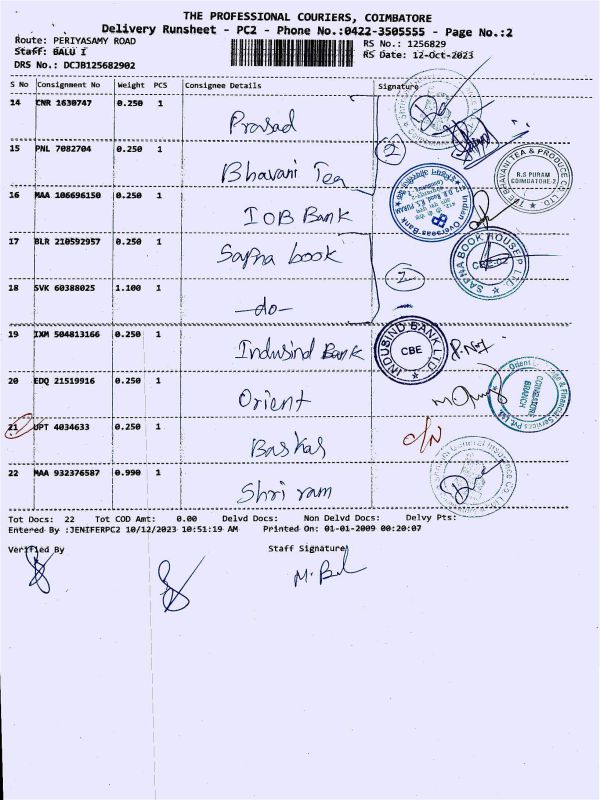 THE PROFESSIONAL COURIERS, COIMBATORE
Delivery Runsheet - PC2 - Phone No.:0422-3505555 - Page No.:2
Route: PERIYASAMY ROAD
RS No.: 1256829
Staff: BALU I
RS Date: 12-Oct-2023
DRS No.: DCJB125682902
S No Consignment No Weight PCS Consignee Details Signature
14 CNR 1630747 0.250 1
Prasad
15 PNL 7082704 0.250 1
2
Bhavani Tea
THE BHAVANI TEA & PRODUCE CO. LTD.
R.S PURAM
COIMBATORE-2
16 MAA 106696150 0.250 1
IOB Bank
Indian Overseas Bank
R.S. PURAM
17 BLR 210592957 0.250 1
Sapna book
SAPNA BOOK HOUSE P LTD.
18 SVK 60388025 1.100 1
2
-do-
19 IXM 504813166 0.250 1
Indusind Bank
INDUSIND BANK LTD
CBE
20 EDQ 21519916 0.250 1
Orient
COIMBATORE
BRANCH
21 UPT 4034633 0.250 1
Baskar
O/N
22 MAA 932376587 0.990 1
Shri ram
Tot Docs: 22 Tot COD Amt: 0.00 Delvd Docs: Non Delvd Docs: Delvy Pts:
Entered By :JENIFERPC2 10/12/2023 10:51:19 AM Printed On: 01-01-2009 00:20:07
Verified By Staff Signature